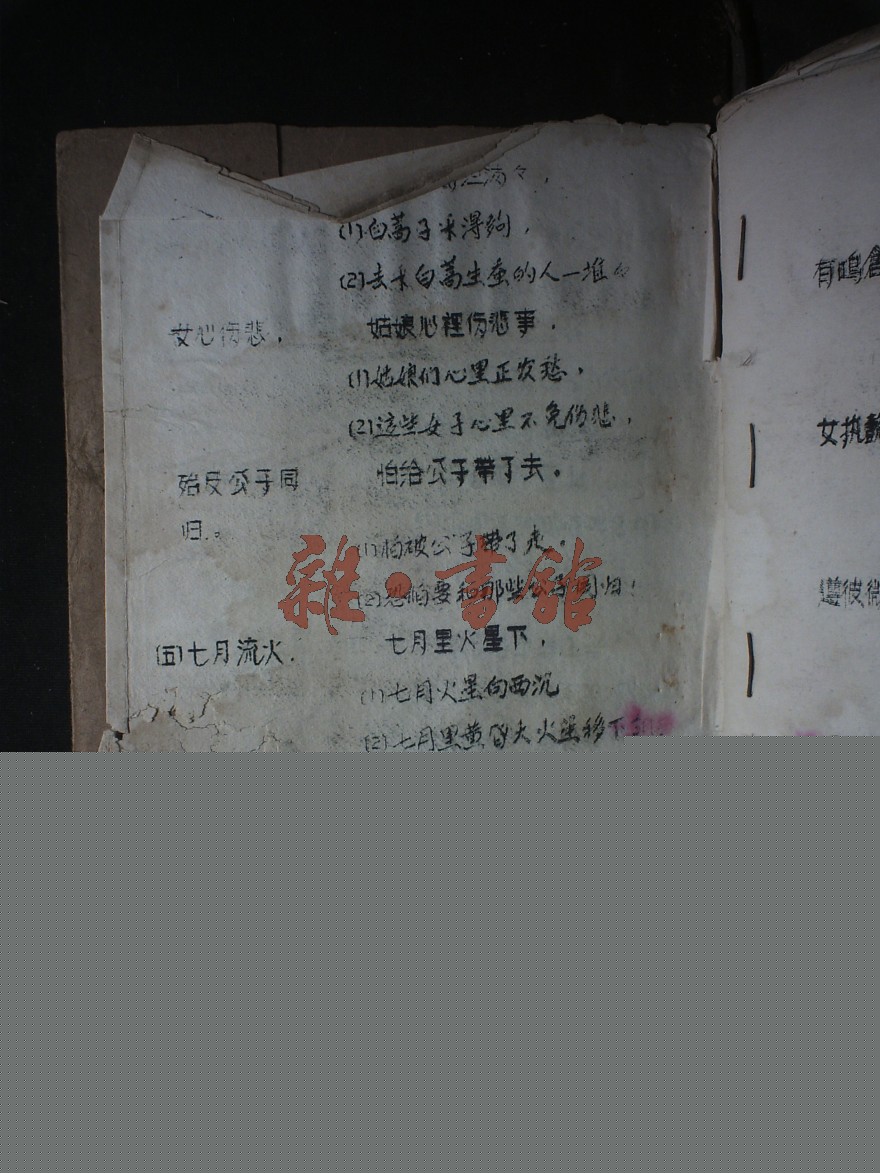 满々，
(1)白蒿子采得夠，
(2)去采白蒿生蚕的人一堆々
女心伤悲，
姑娘心裡伤悲事．
(1)姑娘们心里正发愁，
(2)这些女子心里不免伤悲，
殆及公子同
归。
怕给公子带了去。
(1)怕被公子带了走。
(2)恐怕要和那些公子同归！
(五)七月流火．
七月里火星下，
(1)七月火星向西沉
(2)七月里黄昏大火星移下
有鳴倉
女执懿
遵彼微
雜·書館